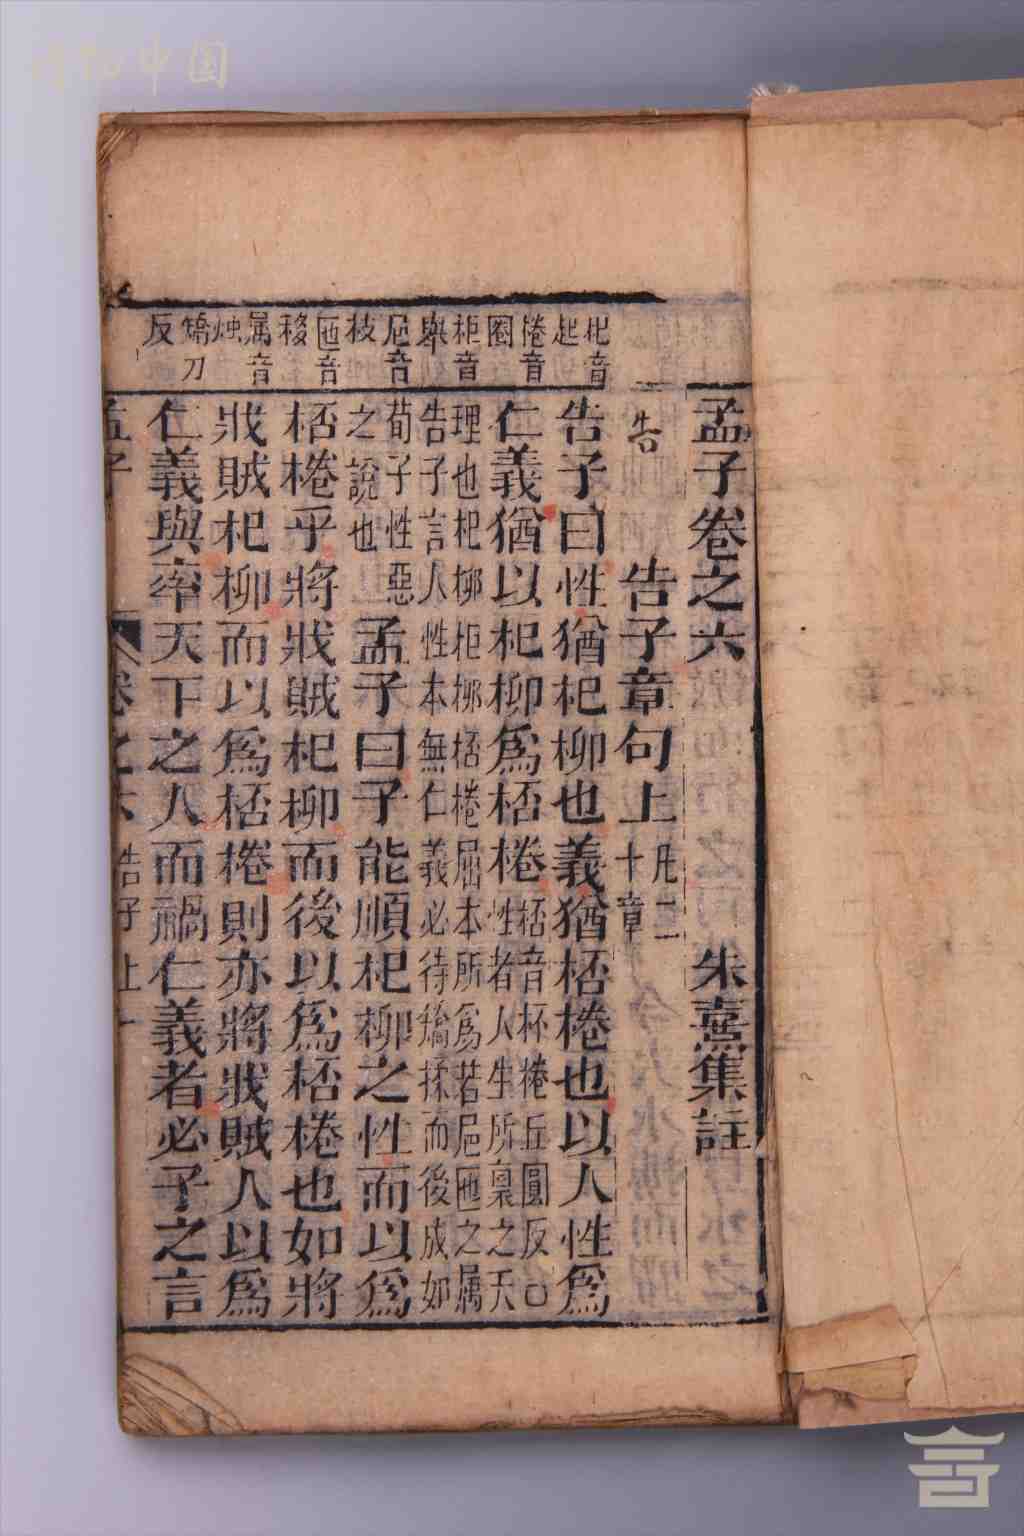 孟子卷之六　朱熹集註
告
告子章句上
凡二
十章
告子曰性猶杞柳也義猶桮棬也以人性爲
仁義猶以杞柳爲桮棬
桮音杯棬丘圓反○
性者人生所禀之天
理也杞柳柜柳桮棬屈本所爲若巵匜之屬
告子言人性本無仁義必待矯揉而後成如
荀子性惡
之說也
孟子曰子能順杞柳之性而以爲
桮棬乎將戕賊杞柳而後以爲桮棬也如將
戕賊杞柳而以爲桮棬則亦將戕賊人以爲
仁義與率天下之人而禍仁義者必子之言
孟子　卷之六　告子上　一
杞音
起
棬音
圈
柜音
舉
巵音
枝
匜音
移
属音
烛
矯刀
反
中国